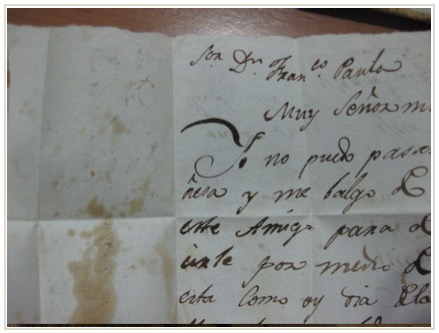 Sor. Dn. Franco. Paula
Muy Señor m
Yo no puedo pasar
ñesa y me balgo d
este Amigo para d
irle por medio d
esta Como oy dia